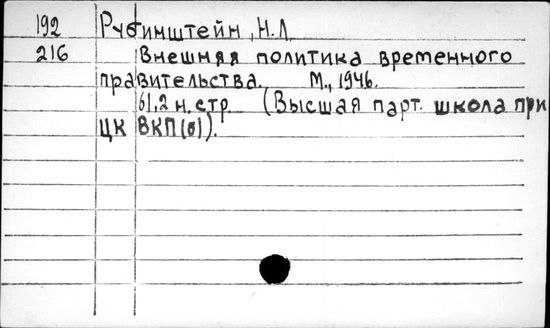 192 Рубинштейн, Н.Л.
216 Внешняя политика временного
правительства. М., 1946.
61,2 н.стр. (Высшая парт. школа при
ЦК ВКП(б)).